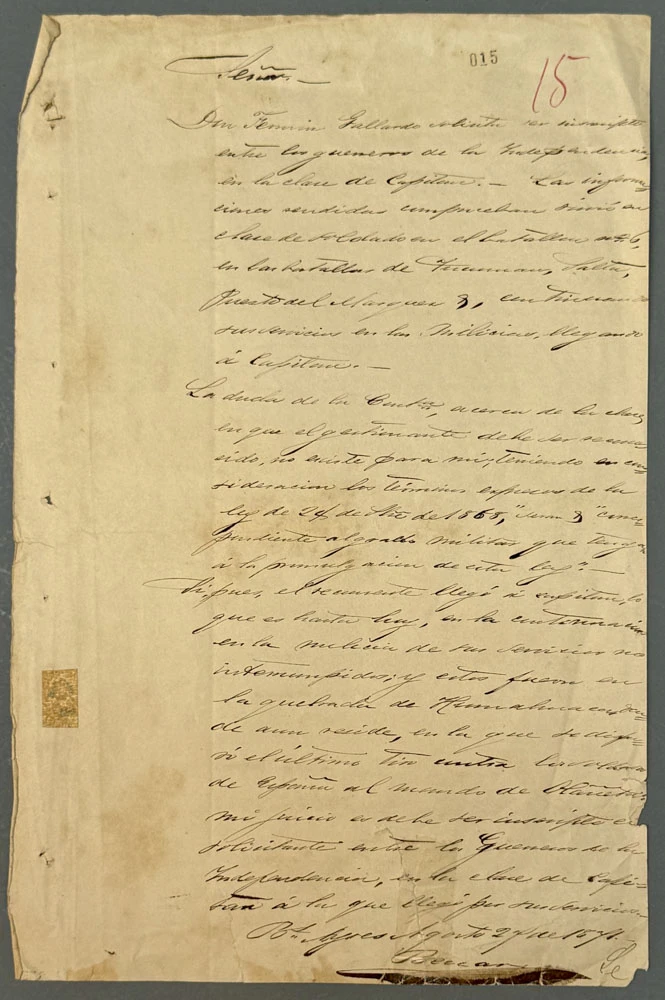 015
15
Señor.—
Don Fermin Gallardo solicita ser inscripto
entre los guerreros de la Independencia,
en la clase de Capitan.— Las informa
ciones rendidas comprueban sirvió en
clase de soldado en el batallon nº 6,
en las batallas de Tucuman, Salta,
Puesto del Marques &, continuando
sus servicios en las Milicias, llegando
á Capitan.—
La duda de la Contª, acerca de la clase
en que el gestionante debe ser recono
cido, no existe para mi, teniendo en con
sideracion los términos espresos de la
ley de 24 de de 1868, " & "corres-
pondiente al grado militar que tenga
á la promulgacion de esta ley".—
Si, pues, el recurrente llegó á capitan, lo
que es hasta hoy, en la continuacion
en la milicia de sus servicios no
interrumpidos; y estos fueron en
la quebrada de Humahuaca, don-
de aun reside, en la que se dispa-
ró el último tiro contra los soldados
de España al mando de Olañeta,
mi juicio es debe ser inscripto el
solicitante entre los Guerreros de la
Independencia, en la clase de Capi-
tan á la que llegó por sus servicios.
Bs. Ayres Agosto 24 de 1871.—